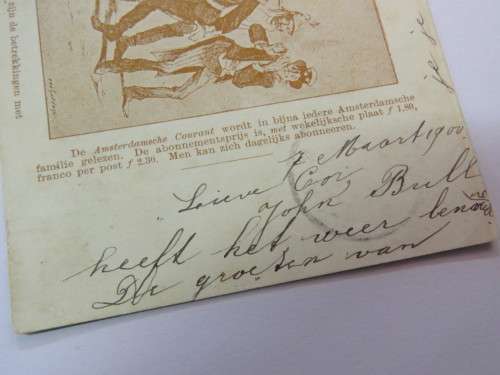 zijn de betrekkingen met
De Amsterdamsche Courant wordt in bijna iedere Amsterdamsche
familie gelezen. De abonnementsprijs is, met wekelijksche plaat f 1.80,
franco per post f 2.30. Men kan zich dagelijks abonneeren.
7 Maart 1900
Lieve Cor
John Bull
heeft het weer
De groeten van
je je